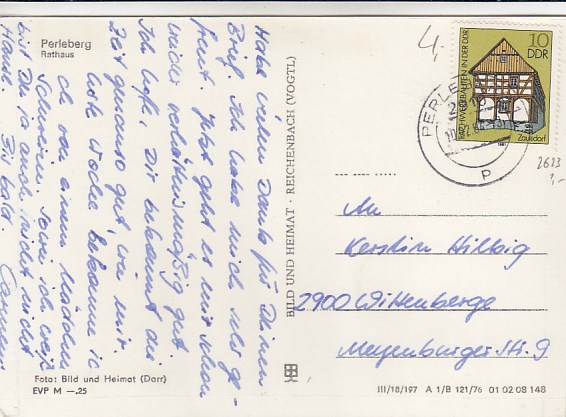 Perleberg
Rathaus
Habe vielen Dank für Deinen
Brief. Ich habe mich sehr ge-
freut. Jetzt geht es mir schon
wieder verhältnismäßig gut
Ich hoffe, Dir bekommt die
Zeit genauso gut wie mir.
Woche bekomme ic
ch von einem Mädchen
Schwerin. Sowie ich weiß
bist Du ja auch nicht
Hause. Bis bald.
Foto: Bild und Heimat (Darr)
EVP M —,25
BILD UND HEIMAT · REICHENBACH (VOGTL)
4,-
10
DDR
FACHWERKBAUTEN IN DER DDR
Zaulsdorf
1981
PERLE
P
2623
1,-
An
Kerstin Hilbig
2900 Wittenberge
Meyenburger Str. 9
III/18/197 A 1/B 121/76 01 02 08 148